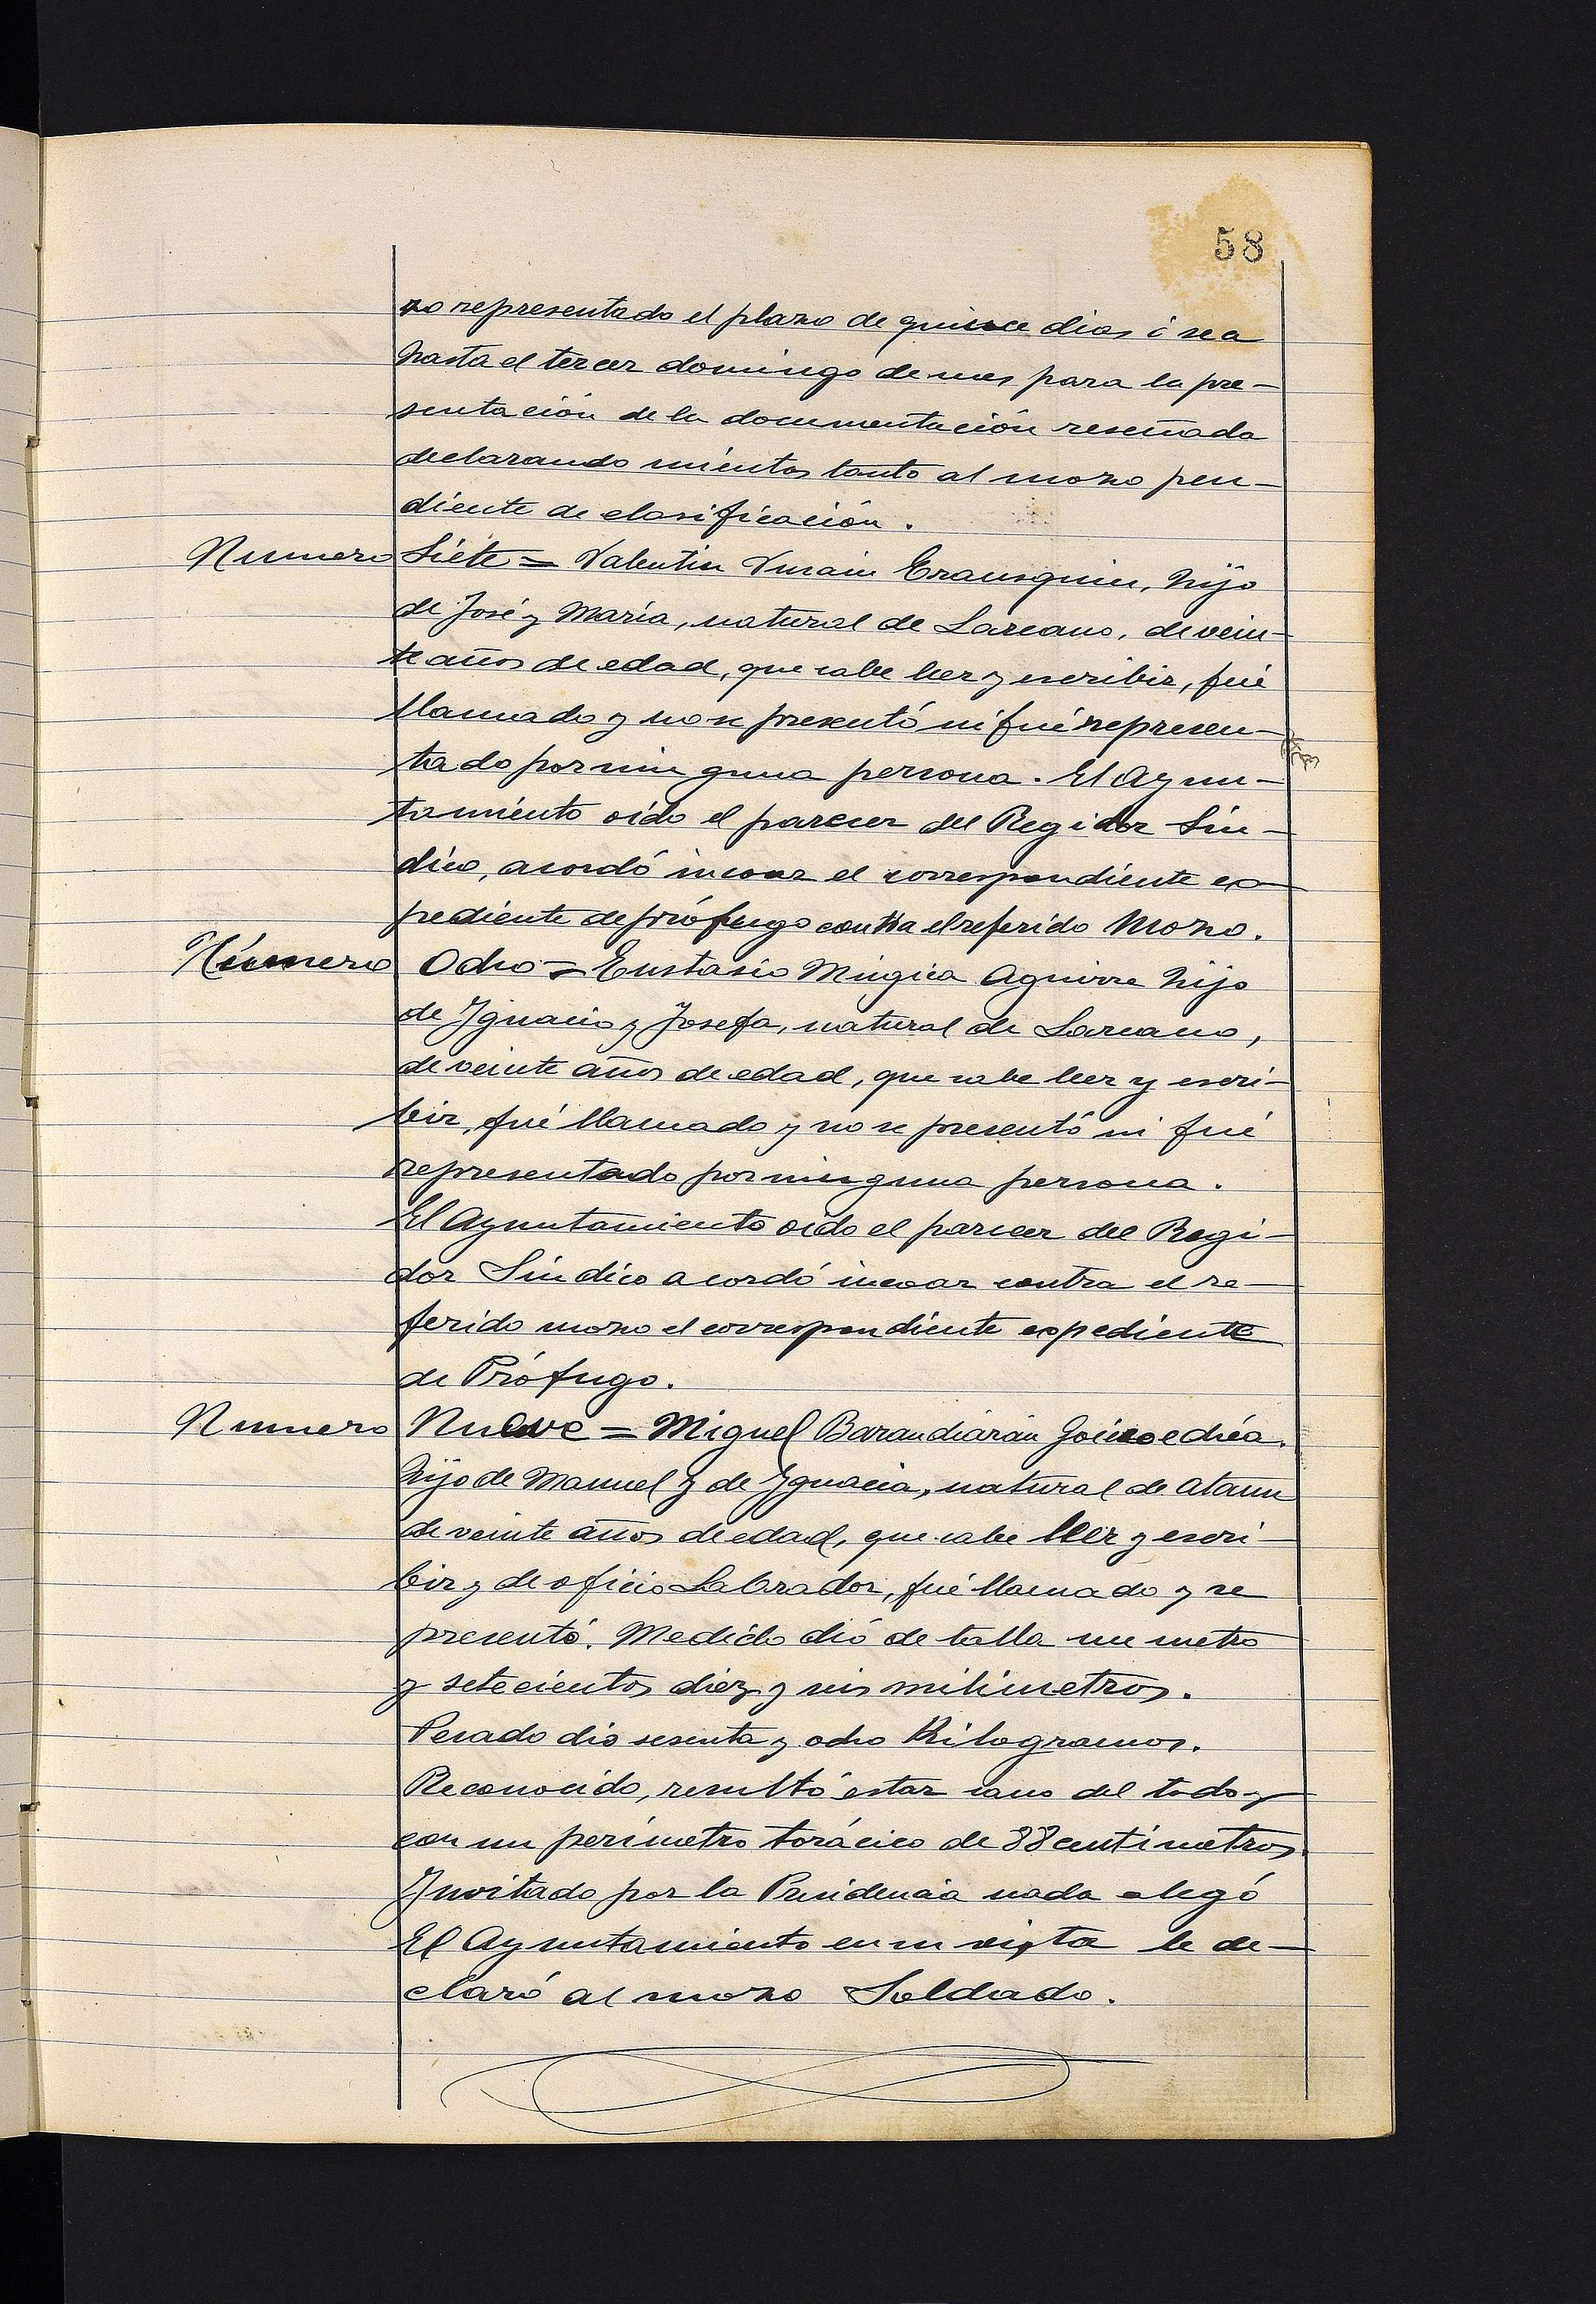 58
zo representado el plazo de quince dias ó sea
hasta el tercer domingo de mes para la pre-
sentación de la documentación reseñada
declarando mientos tanto al mozo pen-
diente de clasificación.
Numero Siete = Valentin Insain Erausquin, hijo
de José y María, natural de Lazcano, de vein-
te años de edad, que sabe leer y escribir, fué
llamado y no se presentó ni fué represen-
tado por ninguna persona. El Ayun-
tamiento oido el parecer del Regidor Sín-
dico, acordó incoar el correspondiente ex-
pediente de prófugo contra el referido Mozo.
Número Ocho = Eustasio Mugica Aguirre hijo
de Ygnacio y Josefa, natural de Lazcano,
de veinte años de edad, que sabe leer y escri-
bir, fué llamado y no se presentó ni fué
representado por ninguna persona.
El Ayuntamiento oido el parecer del Regi-
dor Síndico acordó incoar contra el re-
ferido mozo el correspondiente expediente
de Prófugo.
Numero Nueve = Miguel Barandiarán Goicoechéa.
hijo de Manuel y de Ygnacia, natural de Ataun
de veinte años de edad, que sabe leer y escri-
bir y de oficio Labrador, fué llamado y se
presentó. Medido dió de talla un metro
y setecientos diez y seis milímetros.
Pesado dio sesenta y ocho Kilogramos.
Reconocido, resultó estar sano del todo y
con un perímetro torácico de 88 centímetros.
Invitado por la Presidencia nada alegó
El Ayuntamiento en su vista le de-
claró al mozo Soldado.